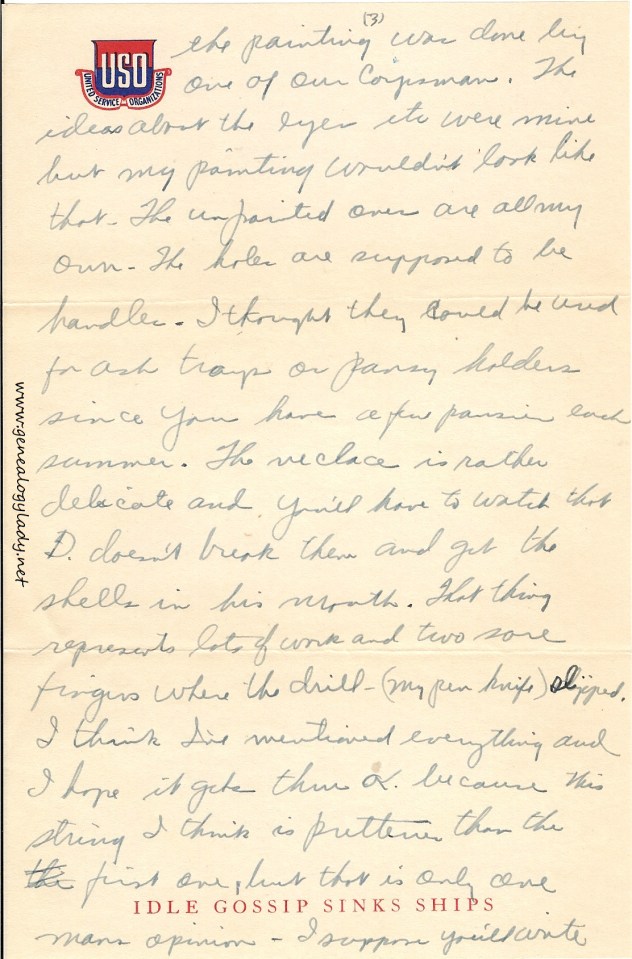 (3)
USO
UNITED SERVICE ORGANIZATIONS
the painting was done by
one of our Corpsman. The
ideas about the eyes etc were mine
but my painting wouldn't look like
that - The unpainted ones are all my
own - The holes are supposed to be
handles - I thought they could be used
for ash trays or pansy holders
since you have a few pansies each
summer. The neclace is rather
delicate and you'll have to watch that
D. doesn't break them and get the
shells in his mouth. That thing
represents lots of work and two sore
fingers where the drill - (my pen knife) slipped.
I think I've mentioned everything and
I hope it gets thru O.K. because this
string I think is prettener than the
the first one, but that is only one
IDLE GOSSIP SINKS SHIPS
mans opinion - I suppose you'll write
www.genealogylady.net